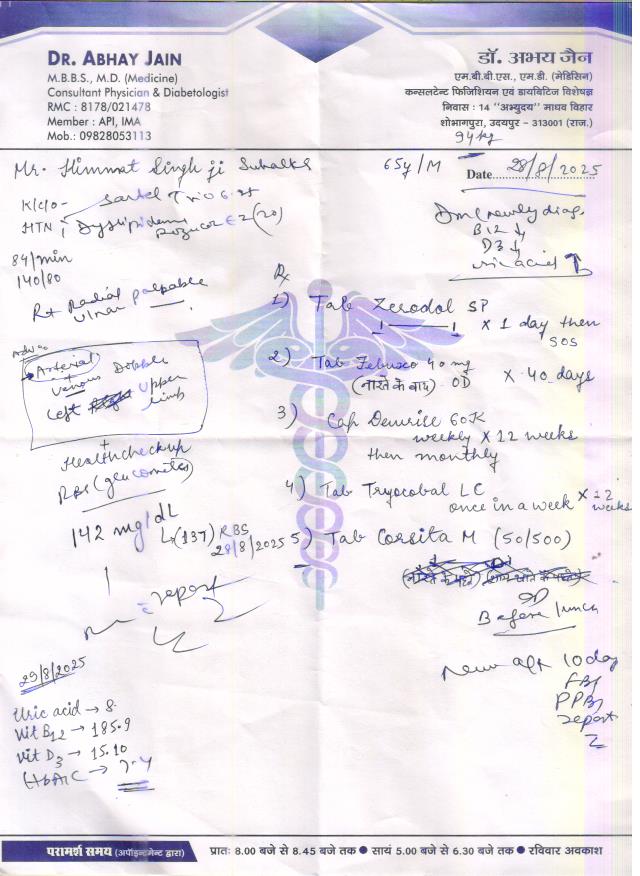 DR. ABHAY JAIN
M.B.B.S., M.D. (Medicine)
Consultant Physician & Diabetologist
RMC : 8178/021478
Member : API, IMA
Mob.: 09828053113
डॉ. अभय जैन
एम.बी.बी.एस., एम.डी. (मेडिसिन)
कन्सलटेन्ट फिजिशियन एवं डायबिटिज विशेषज्ञ
निवास : 14 "अभ्युदय" माधव विहार
शोभागपुरा, उदयपुर – 313001 (राज.)
94 kg
Mr. Himmat Singh ji
65y/M
Date 28/8/2025
K/c/o -
HTN, Dyslipidemia
84/min
140/80
Rt Radial palpable
Ulnar
DM (newly diag.
B12 ↓
D3 ↓
uric acid ↑
Adv
Arterial
+ venous Doppler
Left Upper
limb
+
Health checkup
RBS (glucometer)
142 mg/dL
(137) RBS
28/8/2025
report
Rx
1) Tab Zerodol SP
1 — 1 X 1 day then
SOS
2) Tab Febuxo 40 mg
(नाश्ते के बाद) - OD X 40 days
3) Cap 60K
weekly X 12 weeks
then monthly
4) Tab LC
once in a week X 12 weeks
5) Tab Corsita M (50/500)
OD
Before lunch
10 day
FBS
PPBS
report
29/8/2025
Uric acid → 8.
Vit B12 → 185.9
Vit D3 → 15.10
HbA1C → 7.4
परामर्श समय (अपॉइन्टमेन्ट द्वारा) प्रातः 8.00 बजे से 8.45 बजे तक ● सायं 5.00 बजे से 6.30 बजे तक ● रविवार अवकाश